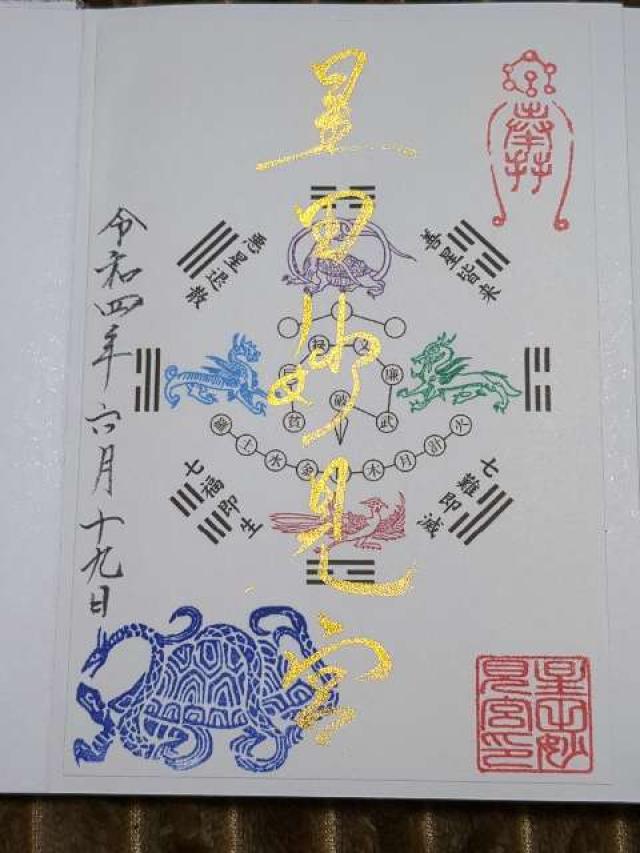 奉拝
星田妙見宮
善星皆来
悪星退散
七難即滅
七福即生
文
廉
武
破
貪
火
計
月
木
金
水
土
羅
令和四年六月十九日
星田妙
見宮印